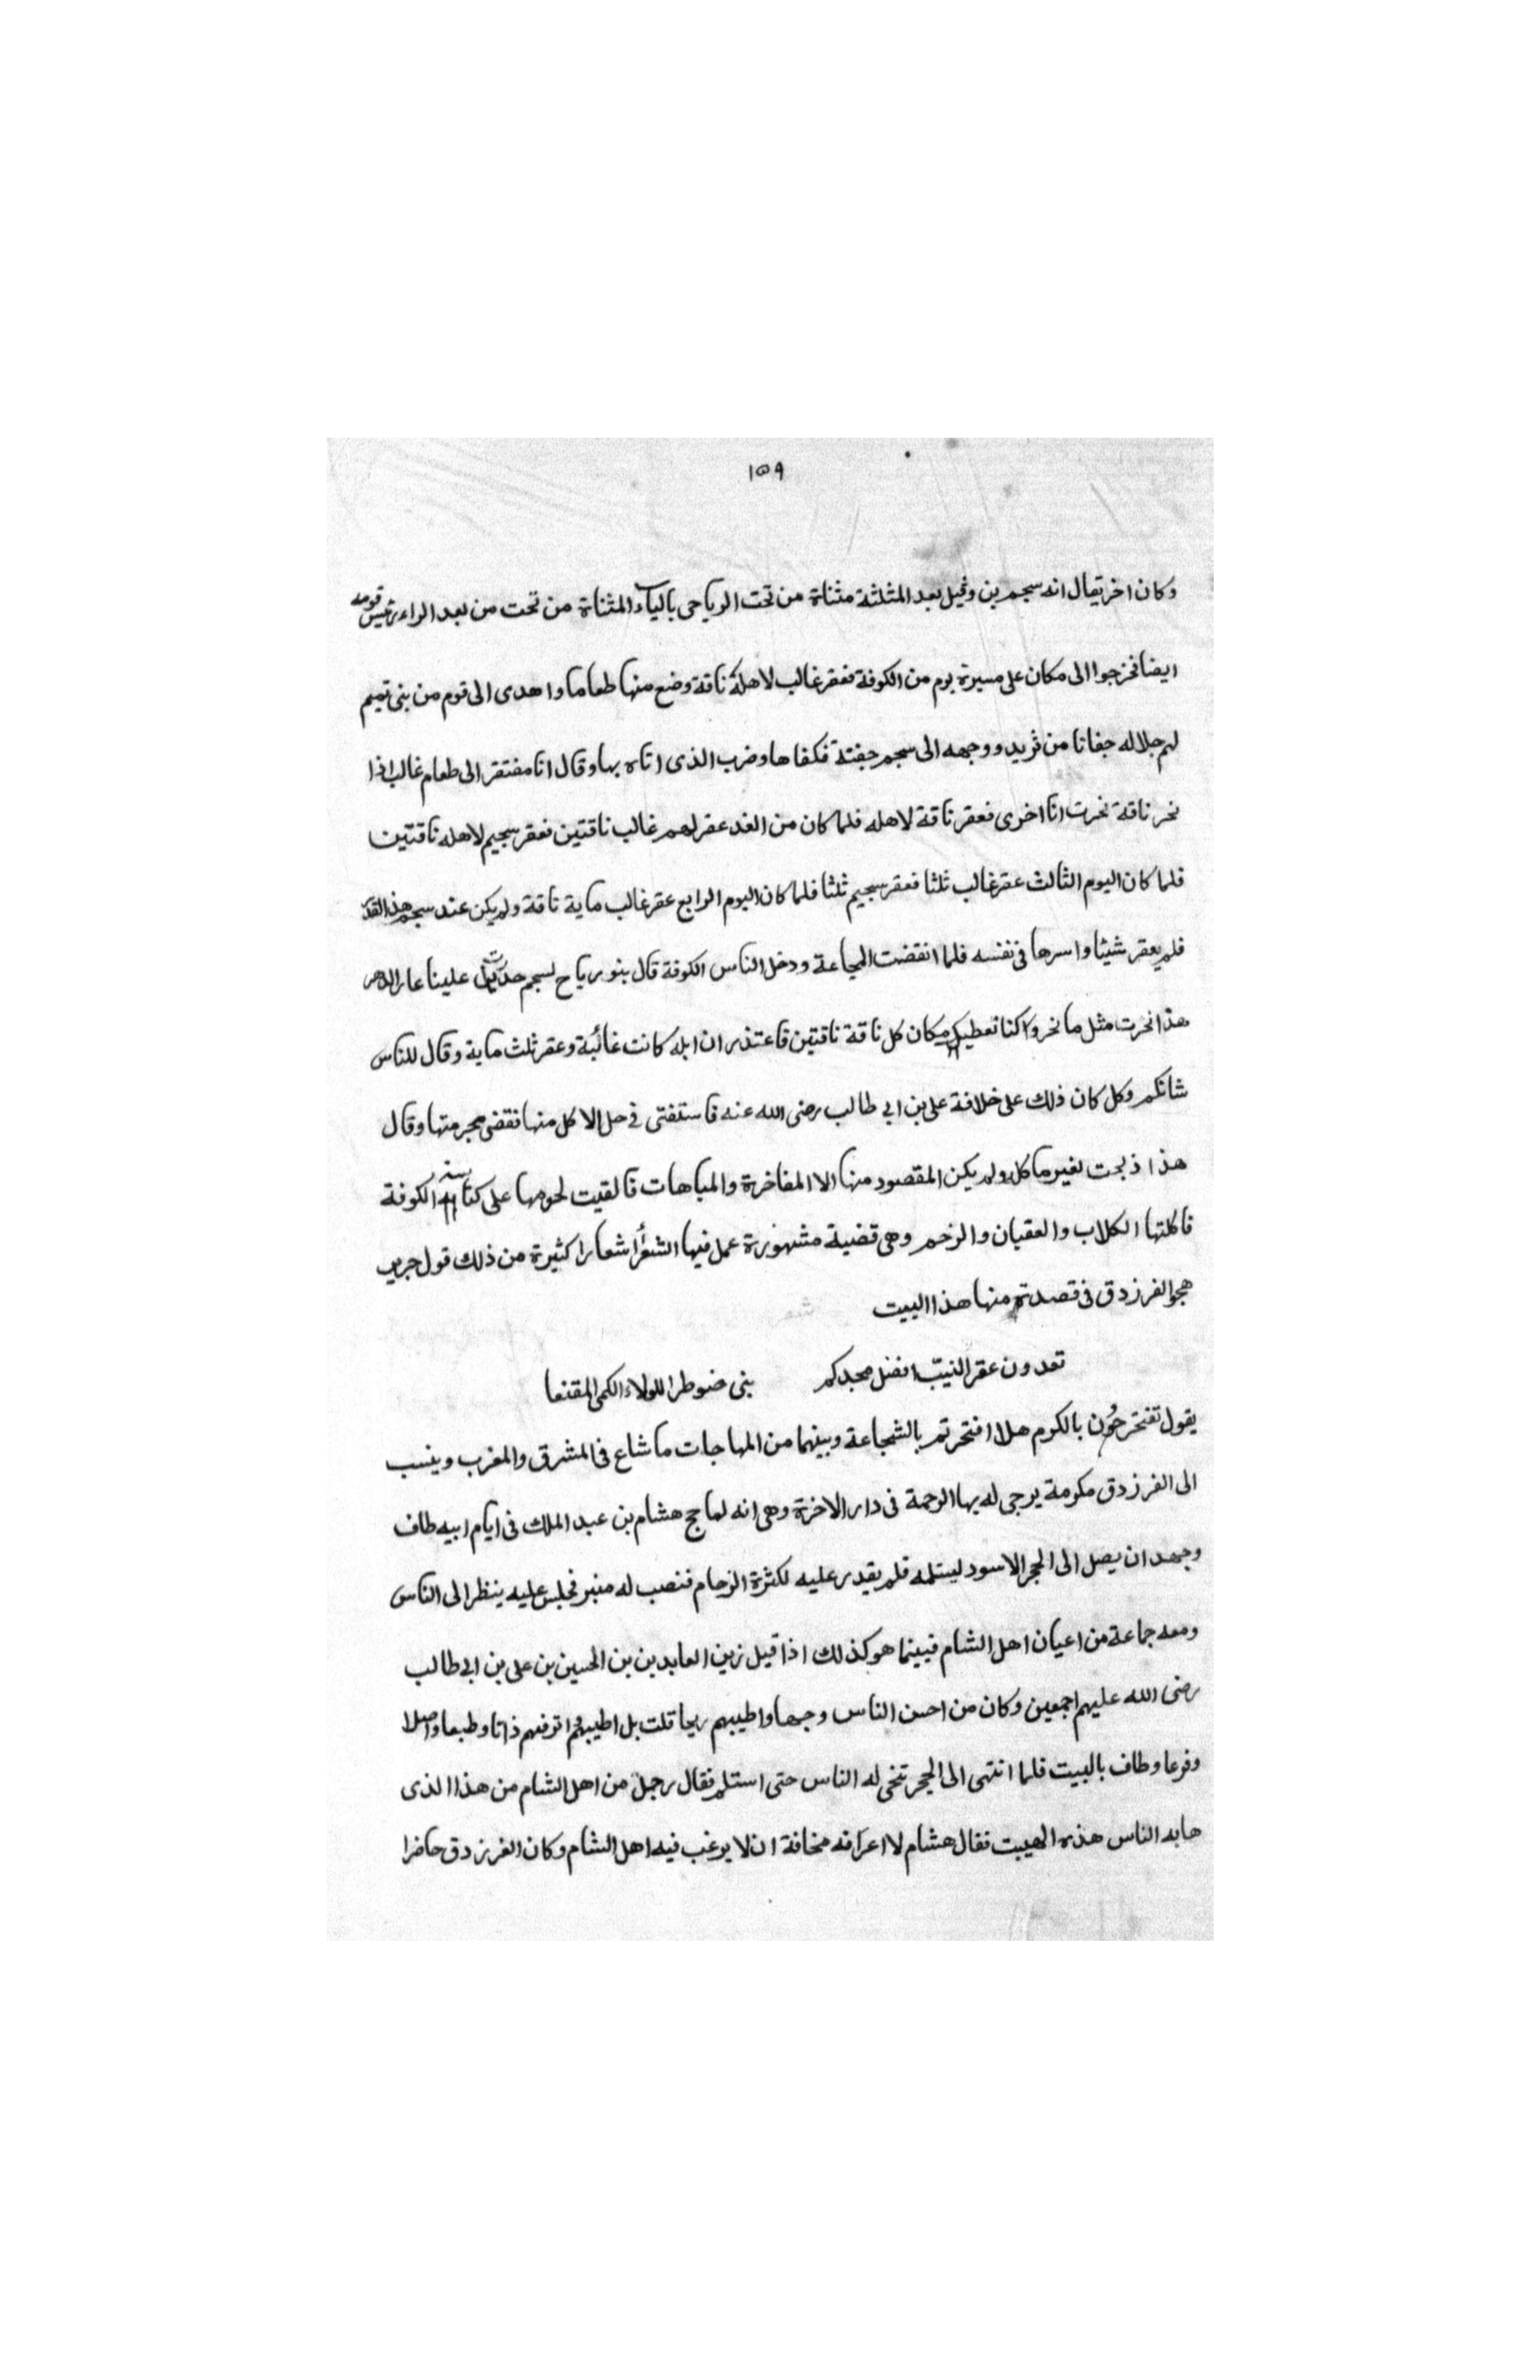 ١٥٩
وكان اخر يقال انه سحيم بن وثيل بعد المثلثة مثناة من تحت الرياحي بالياء المثناة من تحت من بعد الراء رئيس قومه
ايضا فخرجوا الى مكان على مسيرة يوم من الكوفة فعقر غالب لاهله ناقة وضع منها طعاما واهدى الى قوم من بني تميم
لهم جلاله جفانا من ثريد ووجهه الى سحيم جفنة فكفاها وضرب الذى اتاه بها وقال انا مفتقر الى طعام غالب اذا
نحر ناقة نحرت انا اخرى فعقر ناقة لاهله فلما كان من الغد عقر لهم غالب ناقتين فعقر سحيم لاهله ناقتين
فلما كان اليوم الثالث عقر غالب ثلثا فعقر سحيم ثلثا فلما كان اليوم الرابع عقر غالب ماية ناقة ولم يكن عند سحيم هذا القدر
فلم يعقر شيئا واسرها في نفسه فلما انقضت المجاعة ودخل الناس الكوفة قال بنو رياح لسحيم علينا عار الدهر
هذا نحرت مثل ما نحر وكنا نعطيك مكان كل ناقة ناقتين فاعتذر ان ابله كانت غائبة وعقر ثلث ماية وقال للناس
شانكم وكل كان ذلك على خلافة على بن ابي طالب رضى الله عنه فاستفتى في حل الاكل منها فقضى بحرمتها وقال
هذا ذبحت لغير ماكل ولم يكن المقصود منها الا المفاخرة والمباهات فالقيت لحومها على كناسة الكوفة
فاكلتها الكلاب والعقبان والرخم وهى قضية مشهورة عمل فيها الشعرأ اشعارا كثيرة من ذلك قول جرير
هجو الفرزدق في قصدتم منها هذا البيت شعر
تعدون عقر النيب افضل مجدكم بنى ضوطرا للولاء الكمى المقنعا
يقول تفتخرون بالكرم هلا افتخرتم بالشجاعة وبينهما من المهاجات ما شاع في المشرق والمغرب وينسب
الى الفرزدق مكرمة يرجى له بها الرحمة في دار الاخرة وهى انه لما حج هشام بن عبد الملك في ايام ابيه طاف
وجهد ان يصل الى الحجر الاسود ليستلمه فلم يقدر عليه لكثرة الزحام فنصب له منبر فجلس عليه ينظر الى الناس
ومعه جماعة من اعيان اهل الشام فبينما هو كذلك اذا قيل زين العابدين بن الحسين بن على بن ابي طالب
رضى الله عليهم اجمعين وكان من احسن الناس وجها واطيبهم ريحا قلت بل اطيبهم واترفهم ذاتا وطبعا واصلا
وفرعا وطاف بالبيت فلما انتهى الى الحجر تنحى له الناس حتى استلم فقال رجل من اهل الشام من هذا الذى
هابه الناس هذه الهيبت فقال هشام لا اعرافه مخافة ان لا يرغب فيه اهل الشام وكان الفرزدق حاضرا